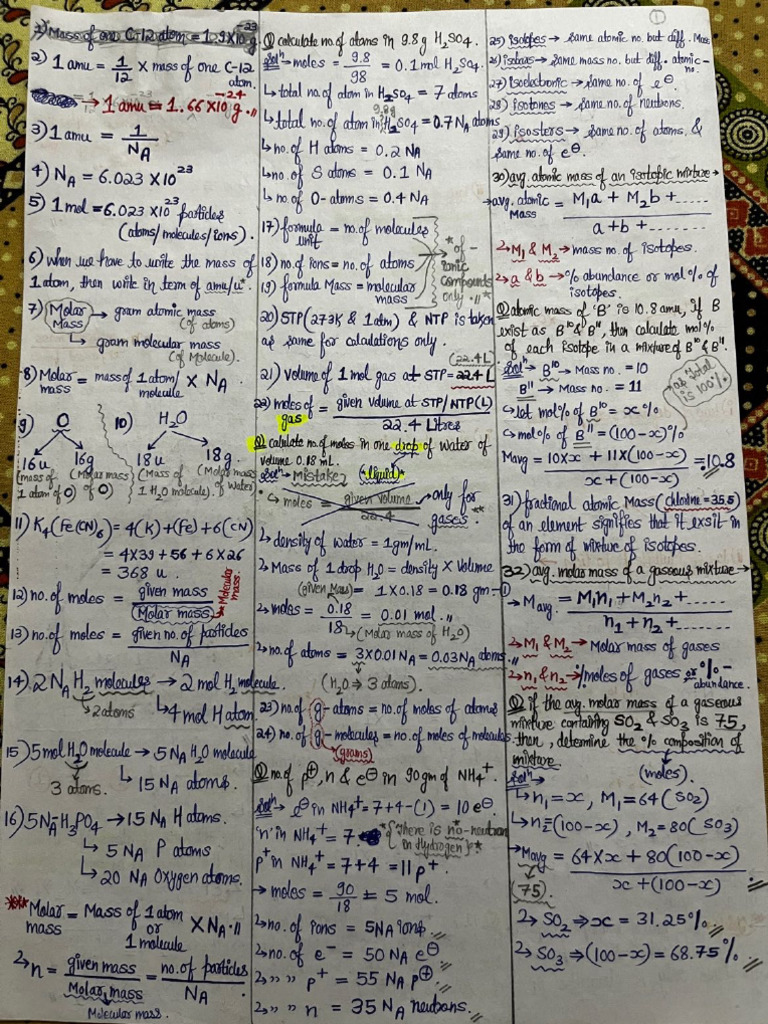 1) Mass of one C-12 atom = 1.9×10⁻²³ g
2) 1 amu = 1/12 × mass of one C-12 atom.
→ 1 amu = 1.66×10⁻²⁴ g.
3) 1 amu = 1/N_A
4) N_A = 6.023×10²³
5) 1 mol = 6.023×10²³ particles
(atoms/molecules/ions).
6) when we have to write the mass of
1 atom, then write in term of amu/u.
7) Molar Mass → gram atomic mass
(of atoms)
↳ gram molecular mass
(of Molecule).
8) Molar mass = mass of 1 atom/molecule × N_A.
9) O 10) H₂O
16u 16g 18u 18g.
(mass of 1 atom of O) (Molar mass of O) (Mass of 1 H₂O molecule). (Molar mass of water)
11) K₄(Fe(CN)₆) = 4(K)+(Fe)+6(CN)
= 4×39+56+6×26
= 368 u.
12) no. of moles = given mass / Molar mass → Molecular mass.
13) no. of moles = given no. of particles / N_A
14) 2N_A H₂ molecules → 2 mol H₂ molecule.
↳ 2 atoms ↳ 4 mol H atom
15) 5 mol H₂O molecule → 5 N_A H₂O molecule
3 atoms. ↳ 15 N_A atoms.
16) 5N_A H₃PO₄ → 15 N_A H atoms.
↳ 5 N_A P atoms
↳ 20 N_A Oxygen atoms.
*** Molar mass = Mass of 1 atom or 1 molecule × N_A.
↳ n = given mass / Molar mass = no. of particles / N_A
Molecular mass.
Q calculate no. of atoms in 9.8 g H₂SO₄.
Solⁿ → moles = 9.8/98 = 0.1 mol H₂SO₄.
↳ total no. of atom in H₂SO₄ = 7 atoms
↳ total no. of atom in 9.8g H₂SO₄ = 0.7 N_A atoms
↳ no. of H atoms = 0.2 N_A
↳ no. of S atoms = 0.1 N_A
↳ no. of O-atoms = 0.4 N_A
17) formula unit = no. of molecules
18) no. of ions = no. of atoms
19) formula Mass = molecular mass
*of ionic compounds only.*
20) STP (273K & 1 atm) & NTP is taken
as same for calculations only.
(22.4 L)
21) Volume of 1 mol gas at STP = 22.4 L
22) moles of gas = given volume at STP/NTP(L) / 22.4 Litres
Q calculate no. of moles in one drop of water of
volume 0.18 mL.
(*liquid)*
Solⁿ → mistake
* ↳ moles = given volume / 22.4 → only for gases. *
↳ density of water = 1 gm/mL.
↳ Mass of 1 drop H₂O = density × Volume
(given Mass) = 1×0.18 = 0.18 gm –①
↳ moles = 0.18/18 = 0.01 mol.
↳ (Molar mass of H₂O)
↳ no. of atoms = 3×0.01 N_A = 0.03 N_A atoms.
(H₂O → 3 atoms).
23) no. of g-atoms = no. of moles of atoms
24) no. of g-molecules = no. of moles of molecules
(grams)
Q no. of p⊕, n & e⊖ in 90 gm of NH₄⁺.
Solⁿ → e⊖ in NH₄⁺ = 7+4-(1) = 10 e⊖
'n' in NH₄⁺ = 7 *{There is no-neutron in Hydrogen}*
p⁺ in NH₄⁺ = 7+4 = 11 p⁺
→ moles = 90/18 = 5 mol.
↳ no. of ions = 5N_A ions.
↳ no. of e⁻ = 50 N_A e⊖
↳ " " p⁺ = 55 N_A p⊕
↳ " " n = 35 N_A neutrons.
①
25) isotopes → same atomic no. but diff. Mass
26) isobars → same mass no. but diff. atomic-no.
27) isoelectronic → same no. of e⊖
28) isotones → same no. of neutrons.
29) isosters → same no. of atoms &
same no. of e⊖.
30) avg. atomic mass of an isotopic mixture →
→ avg. atomic Mass = M₁a + M₂b + ..... / a+b+......
↳ M₁ & M₂ → mass no. of isotopes.
↳ a & b → % abundance or mol% of
isotopes.
Q atomic mass of 'B' is 10.8 amu, if B
exist as B¹⁰ & B¹¹, then calculate mol%
of each isotope in a mixture of B¹⁰ & B¹¹.
Solⁿ → B¹⁰ → Mass no. = 10
B¹¹ → Mass no. = 11
as total is 100%
↳ let mol% of B¹⁰ = x%
↳ mol% of B¹¹ = (100-x)%
Mavg = 10×x + 11×(100-x) / x+(100-x) = 10.8
31) fractional atomic Mass (chlorine = 35.5)
of an element signifies that it exsit in
the form of mixture of isotopes.
32) avg. molar mass of a gaseous mixture →
→ Mavg. = M₁n₁+M₂n₂+...... / n₁+n₂+.......
↳ M₁ & M₂ → Molar mass of gases
↳ n₁ & n₂ → moles of gases or %-abundance.
Q if the avg. molar mass of a gaseous
mixture containing SO₂ & SO₃ is 75,
then, determine the % composition of
mixture. (moles).
Solⁿ →
↳ n₁ = x, M₁ = 64 (SO₂)
↳ n₂ = (100-x), M₂ = 80 (SO₃)
→ Mavg = 64×x + 80(100-x) / x+(100-x)
(75).
↳ SO₂ → x = 31.25%
↳ SO₃ → (100-x) = 68.75%.